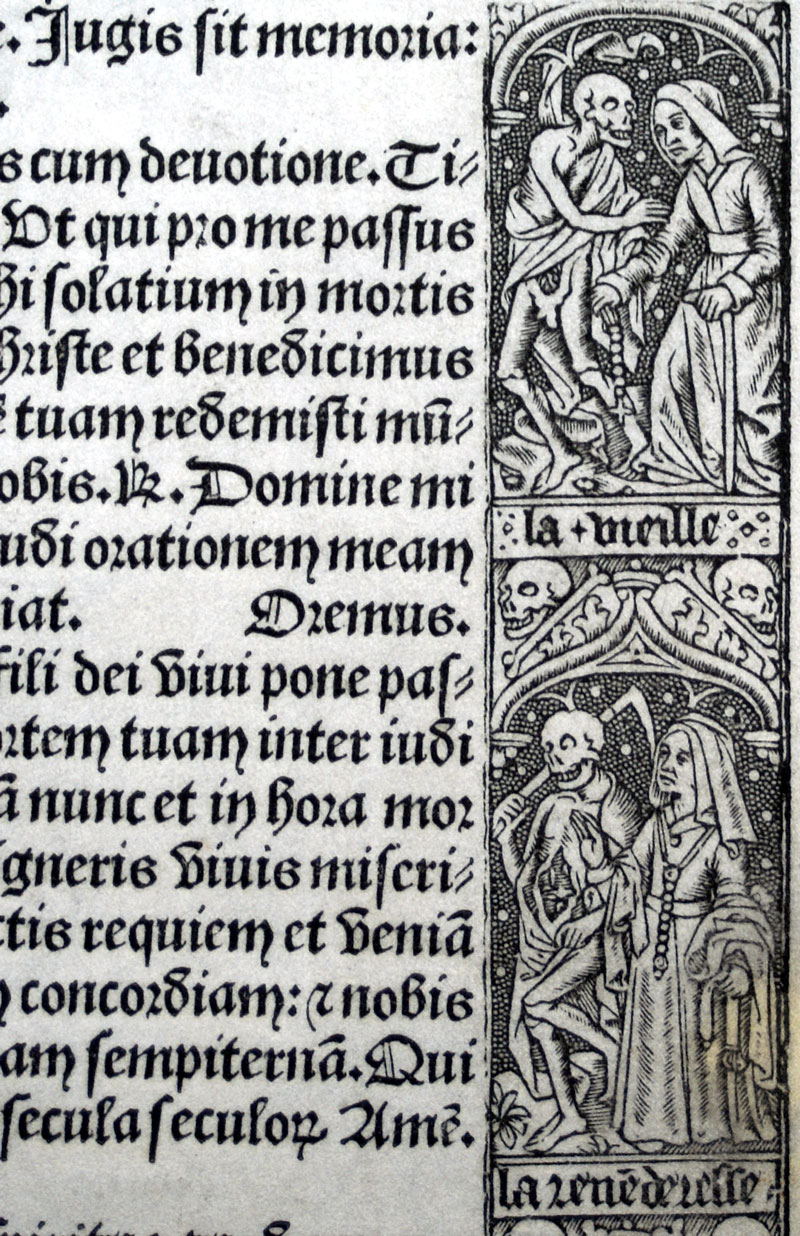 . Jugis sit memoria:
.
s cum deuotione. Ti⸗
Vt qui pro me passus
hi solatium in mortis
hriste et benedicimus
tuam redemisti mū⸗
obis. ℟. Domine mi
udi orationem meam
iat. Oremus.
fili dei viui pone pas⸗
ortem tuam inter iudi
ā nunc et in hora mor
gneris viuis miseri⸗
tis requiem et veniā
concordiam: ⁊ nobis
am sempiternā. Qui
secula seculoꝝ Amē.
la + vieille
la reuēderesse